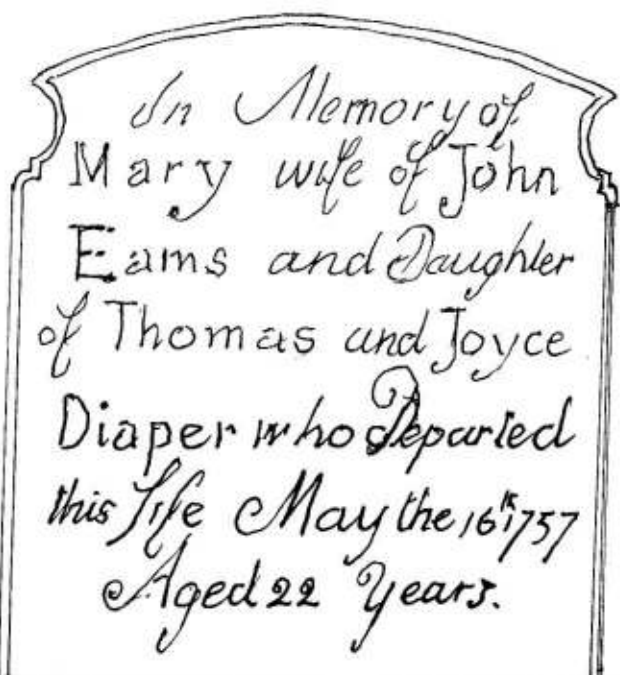 In Memory of
Mary wife of John
Eams and Daughter
of Thomas and Joyce
Diaper who Departed
this life May the 16th 1757
Aged 22 Years.